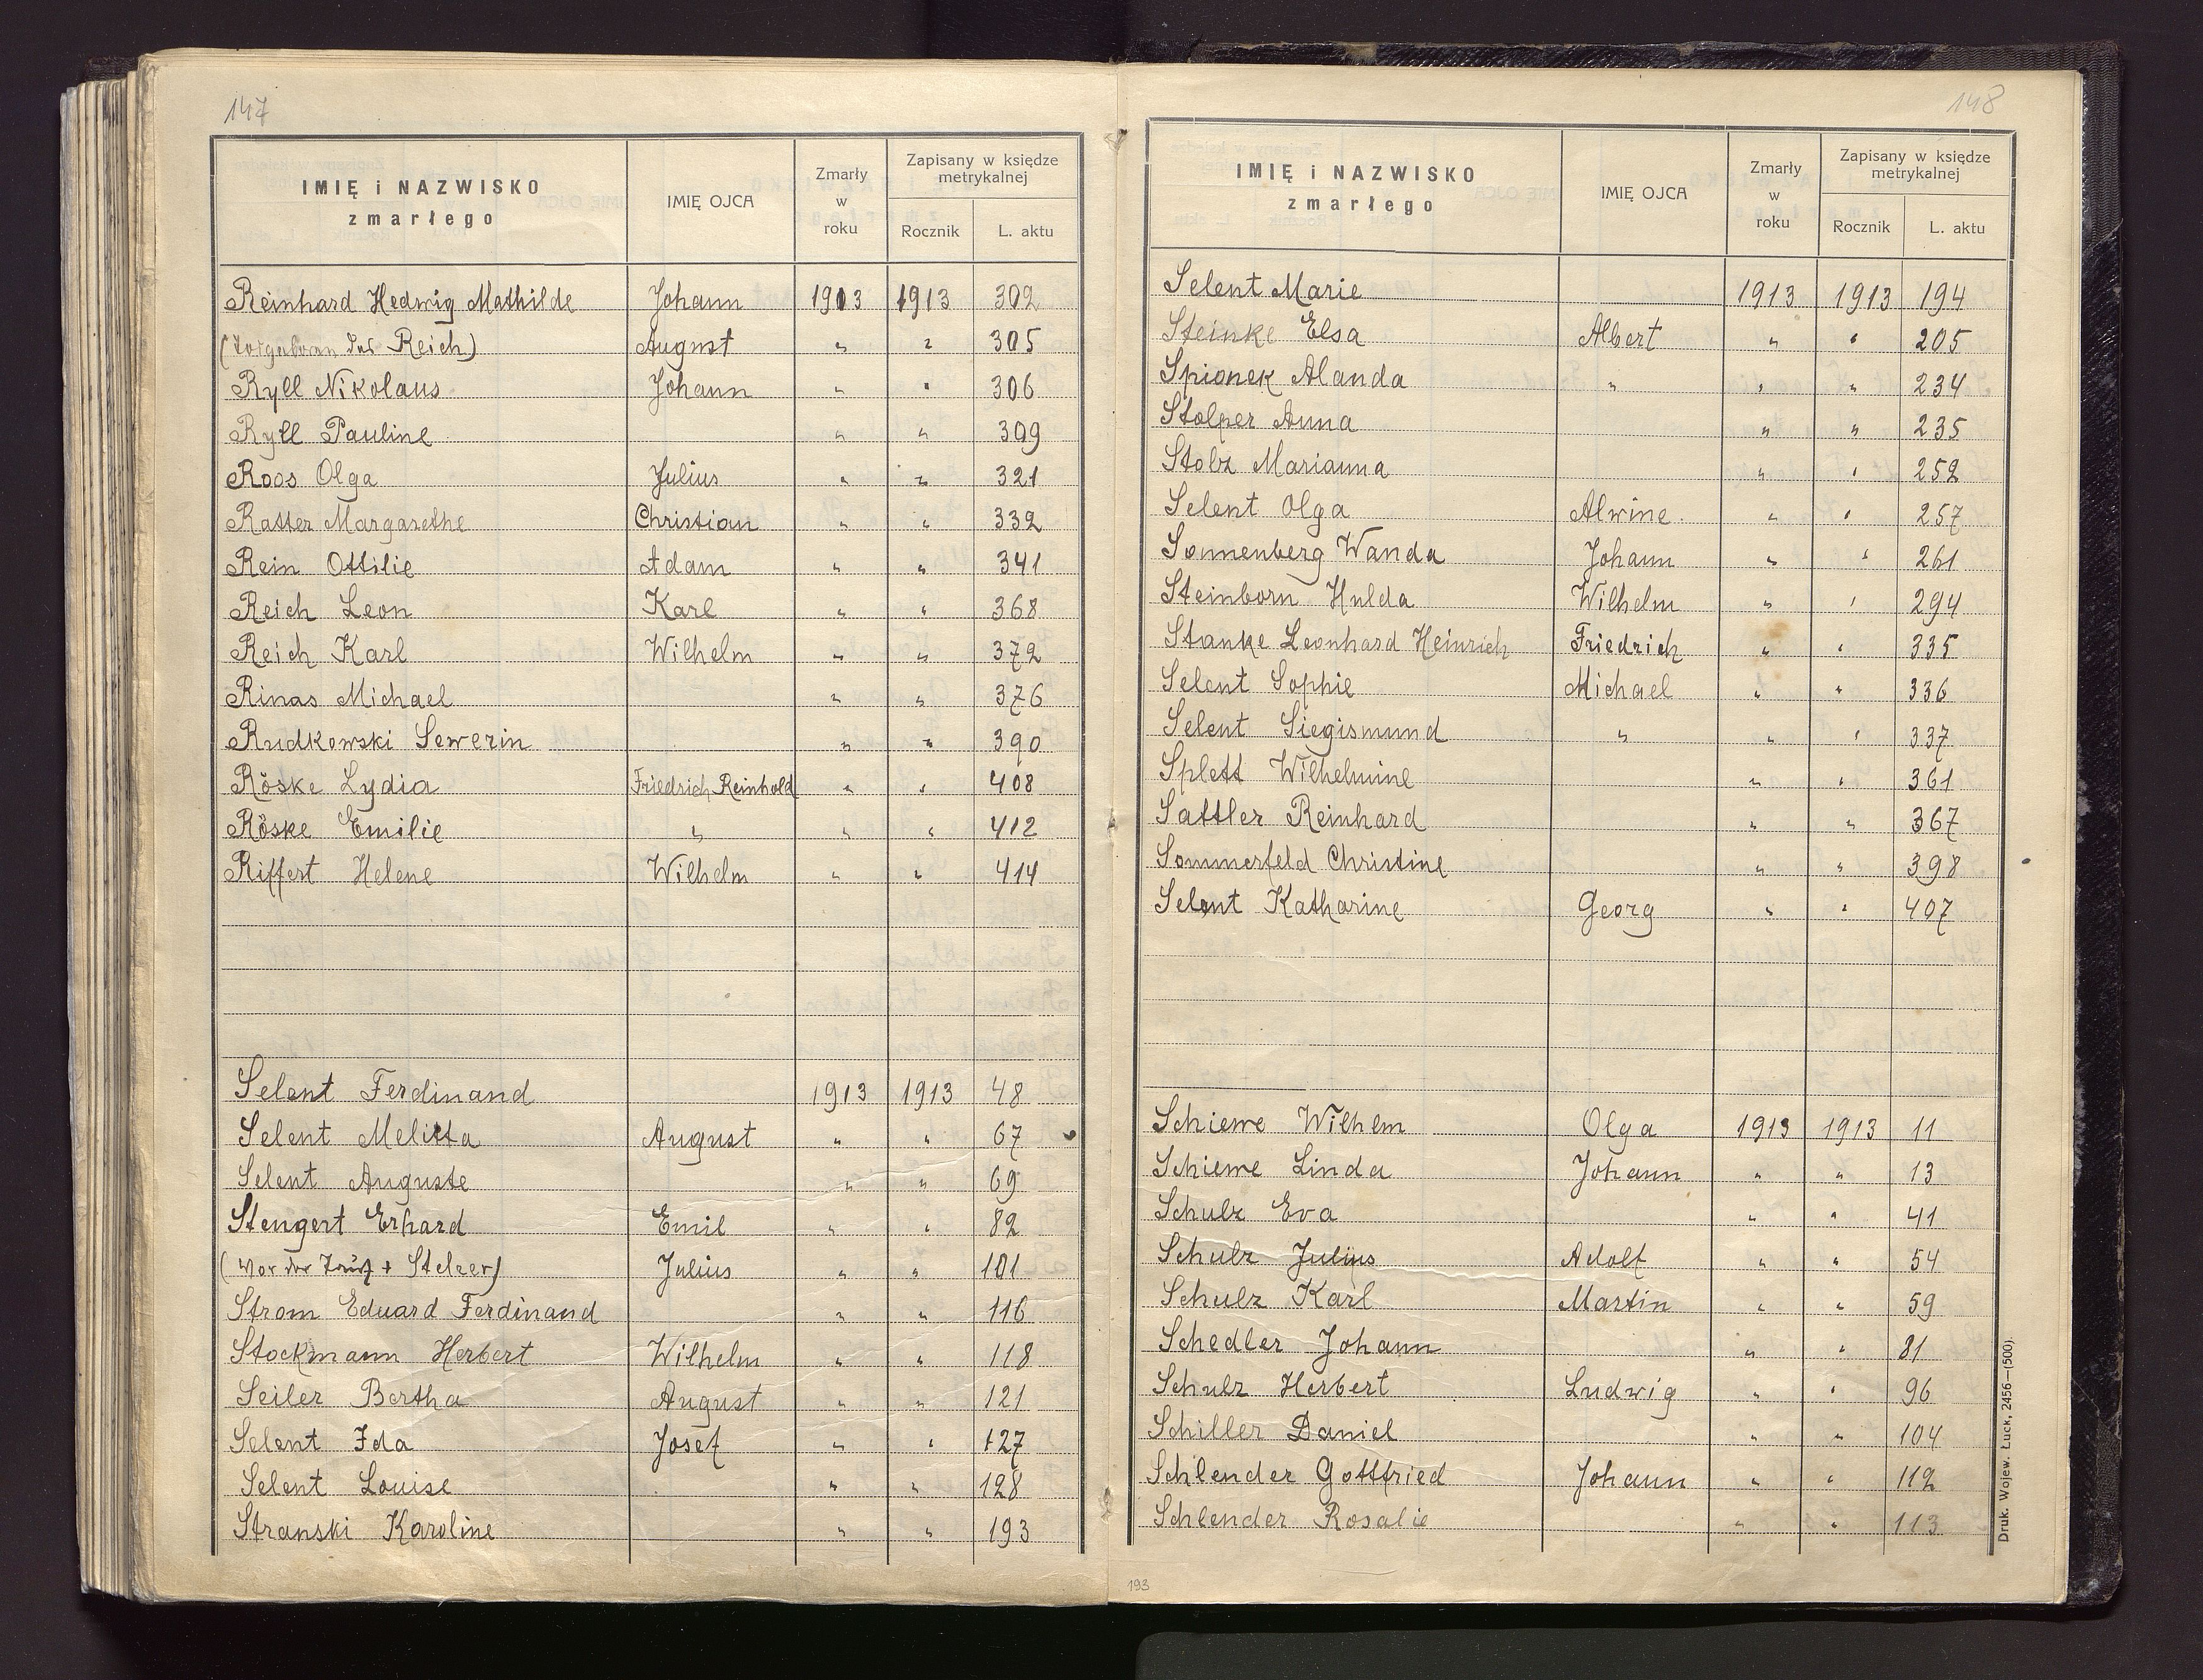 147
IMIĘ i NAZWISKO zmarłego | IMIĘ OJCA | Zmarły w roku | Zapisany w księdze metrykalnej
Rocznik | L. aktu
Reinhard Hedwig Mathilde | Johann | 1913 | 1913 | 302
( Reich) | August | " | " | 305
Ryll Nikolaus | Johann | " | " | 306
Ryll Pauline | | " | " | 309
Roos Olga | Julius | " | " | 321
Ratter Margarethe | Christian | " | " | 332
Rein Ottilie | Adam | " | " | 341
Reich Leon | Karl | " | " | 368
Reich Karl | Wilhelm | " | " | 372
Rinas Michael | | " | " | 376
Rudkowski Sewerin | | " | " | 390
Röske Lydia | Friedrich Reinhold | " | " | 408
Röske Emilie | " | " | " | 412
Riffert Helene | Wilhelm | " | " | 414
Selent Ferdinand | | 1913 | 1913 | 48
Selent Melitta | August | " | " | 67
Selent Auguste | | " | " | 69
Stengert Erhard | Emil | " | " | 82
( Stelzer) | Julius | " | " | 101
Strom Eduard Ferdinand | | " | " | 116
Stockmann Herbert | Wilhelm | " | " | 118
Seiler Bertha | August | " | " | 121
Selent Ida | Josef | " | " | 127
Selent Louise | | " | " | 128
Stranski Karoline | | " | " | 193
148
IMIĘ i NAZWISKO zmarłego | IMIĘ OJCA | Zmarły w roku | Zapisany w księdze metrykalnej
Rocznik | L. aktu
Selent Marie | | 1913 | 1913 | 194
Steinke Elsa | Albert | " | " | 205
Spionek Alanda | " | " | " | 234
Stolper Anna | | " | " | 235
Stolz Marianna | | " | " | 252
Selent Olga | Alwine | " | " | 257
Sonnenberg Wanda | Johann | " | " | 261
Steinborn Hulda | Wilhelm | " | " | 294
Stanke Leonhard Heinrich | Friedrich | " | " | 335
Selent Sophie | Michael | " | " | 336
Selent Siegismund | " | " | " | 337
Splett Wilhelmine | | " | " | 361
Sattler Reinhard | | " | " | 367
Sommerfeld Christine | | " | " | 398
Selent Katharine | Georg | " | " | 407
Schiewe Wilhlm | Olga | 1913 | 1913 | 11
Schiewe Linda | Johann | " | " | 13
Schulz Eva | | " | " | 41
Schulz Julius | Adolf | " | " | 54
Schulz Karl | Martin | " | " | 59
Schedler Johann | | " | " | 81
Schulz Herbert | Ludwig | " | " | 96
Schiller Daniel | | " | " | 104
Schlender Gottfried | Johann | " | " | 112
Schlender Rosalie | | " | " | 113
Druk. Wojew. Łuck, 2456—(500).
193